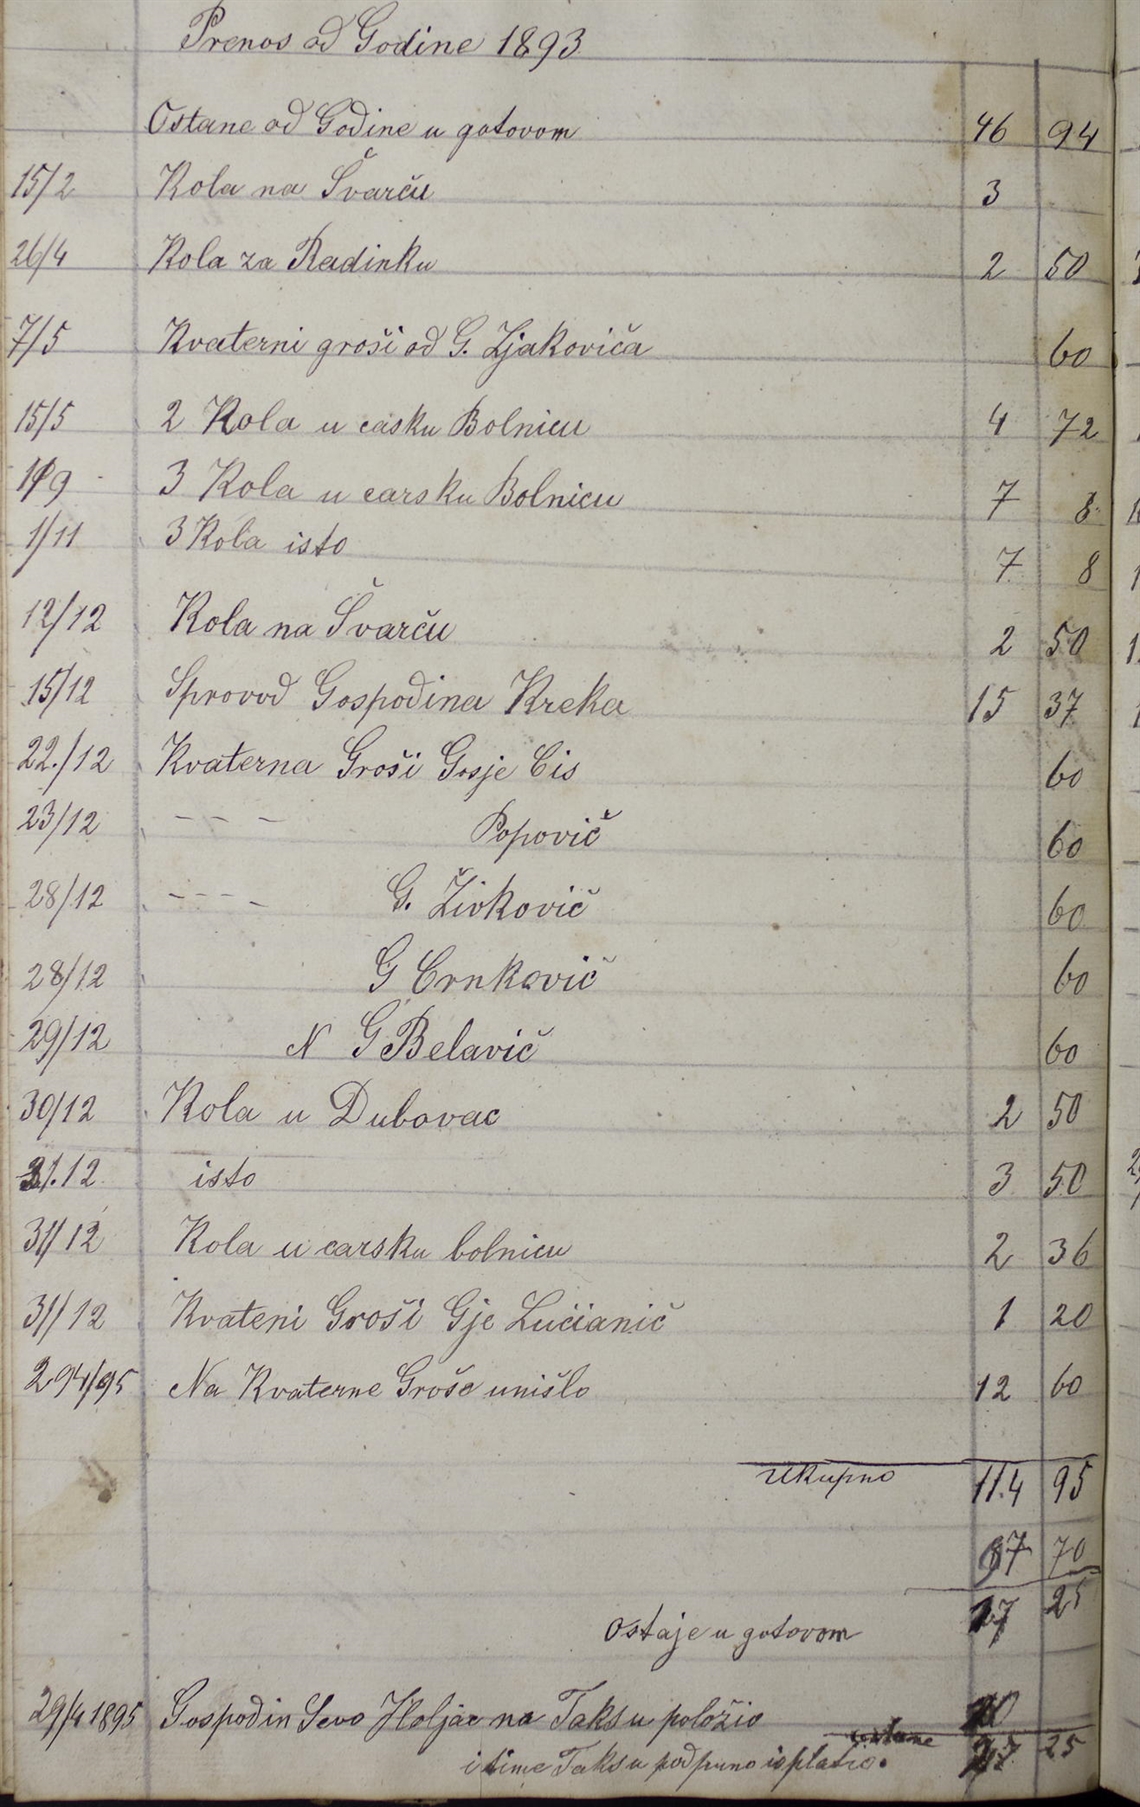 Prenos od Godine 1893
Ostane od Godine u gotovom 46 94
15/2 Kola na Švarču 3
26/4 Kola za Radinku 2 50
7/5 Kvaterni groši od G. Zjakoviča 60
15/5 2 Kola u casku Bolnicu 4 72
1/9 3 Kola u carsku Bolnicu 7 8
1/11 3 Kola isto 7 8
12/12 Kola na Švarču 2 50
15/12 Sprovod Gospodina Kreka 15 37
22./12 Kvaterna Groši Gosje Cis 60
23/12 - - - Popovič 60
28/12 - - - - G. Živkovič 60
28/12 G Crnkovič 60
29/12 N G Belavič 60
30/12 Kola u Dubovac 2 50
31.12 isto 3 50
31/12 Kola u carsku bolnicu 2 36
31/12 Kvateni Groši Gje Lucianič 1 20
294/95 Na Kvaterne Groše unišlo 12 60
Ukupno 114 95
70
Ostaje u gotovom 25
29/4 1895 Gospodin Sevo Holjac na Taksu položio
ostane 25
i time Taksu podpuno isplatio.